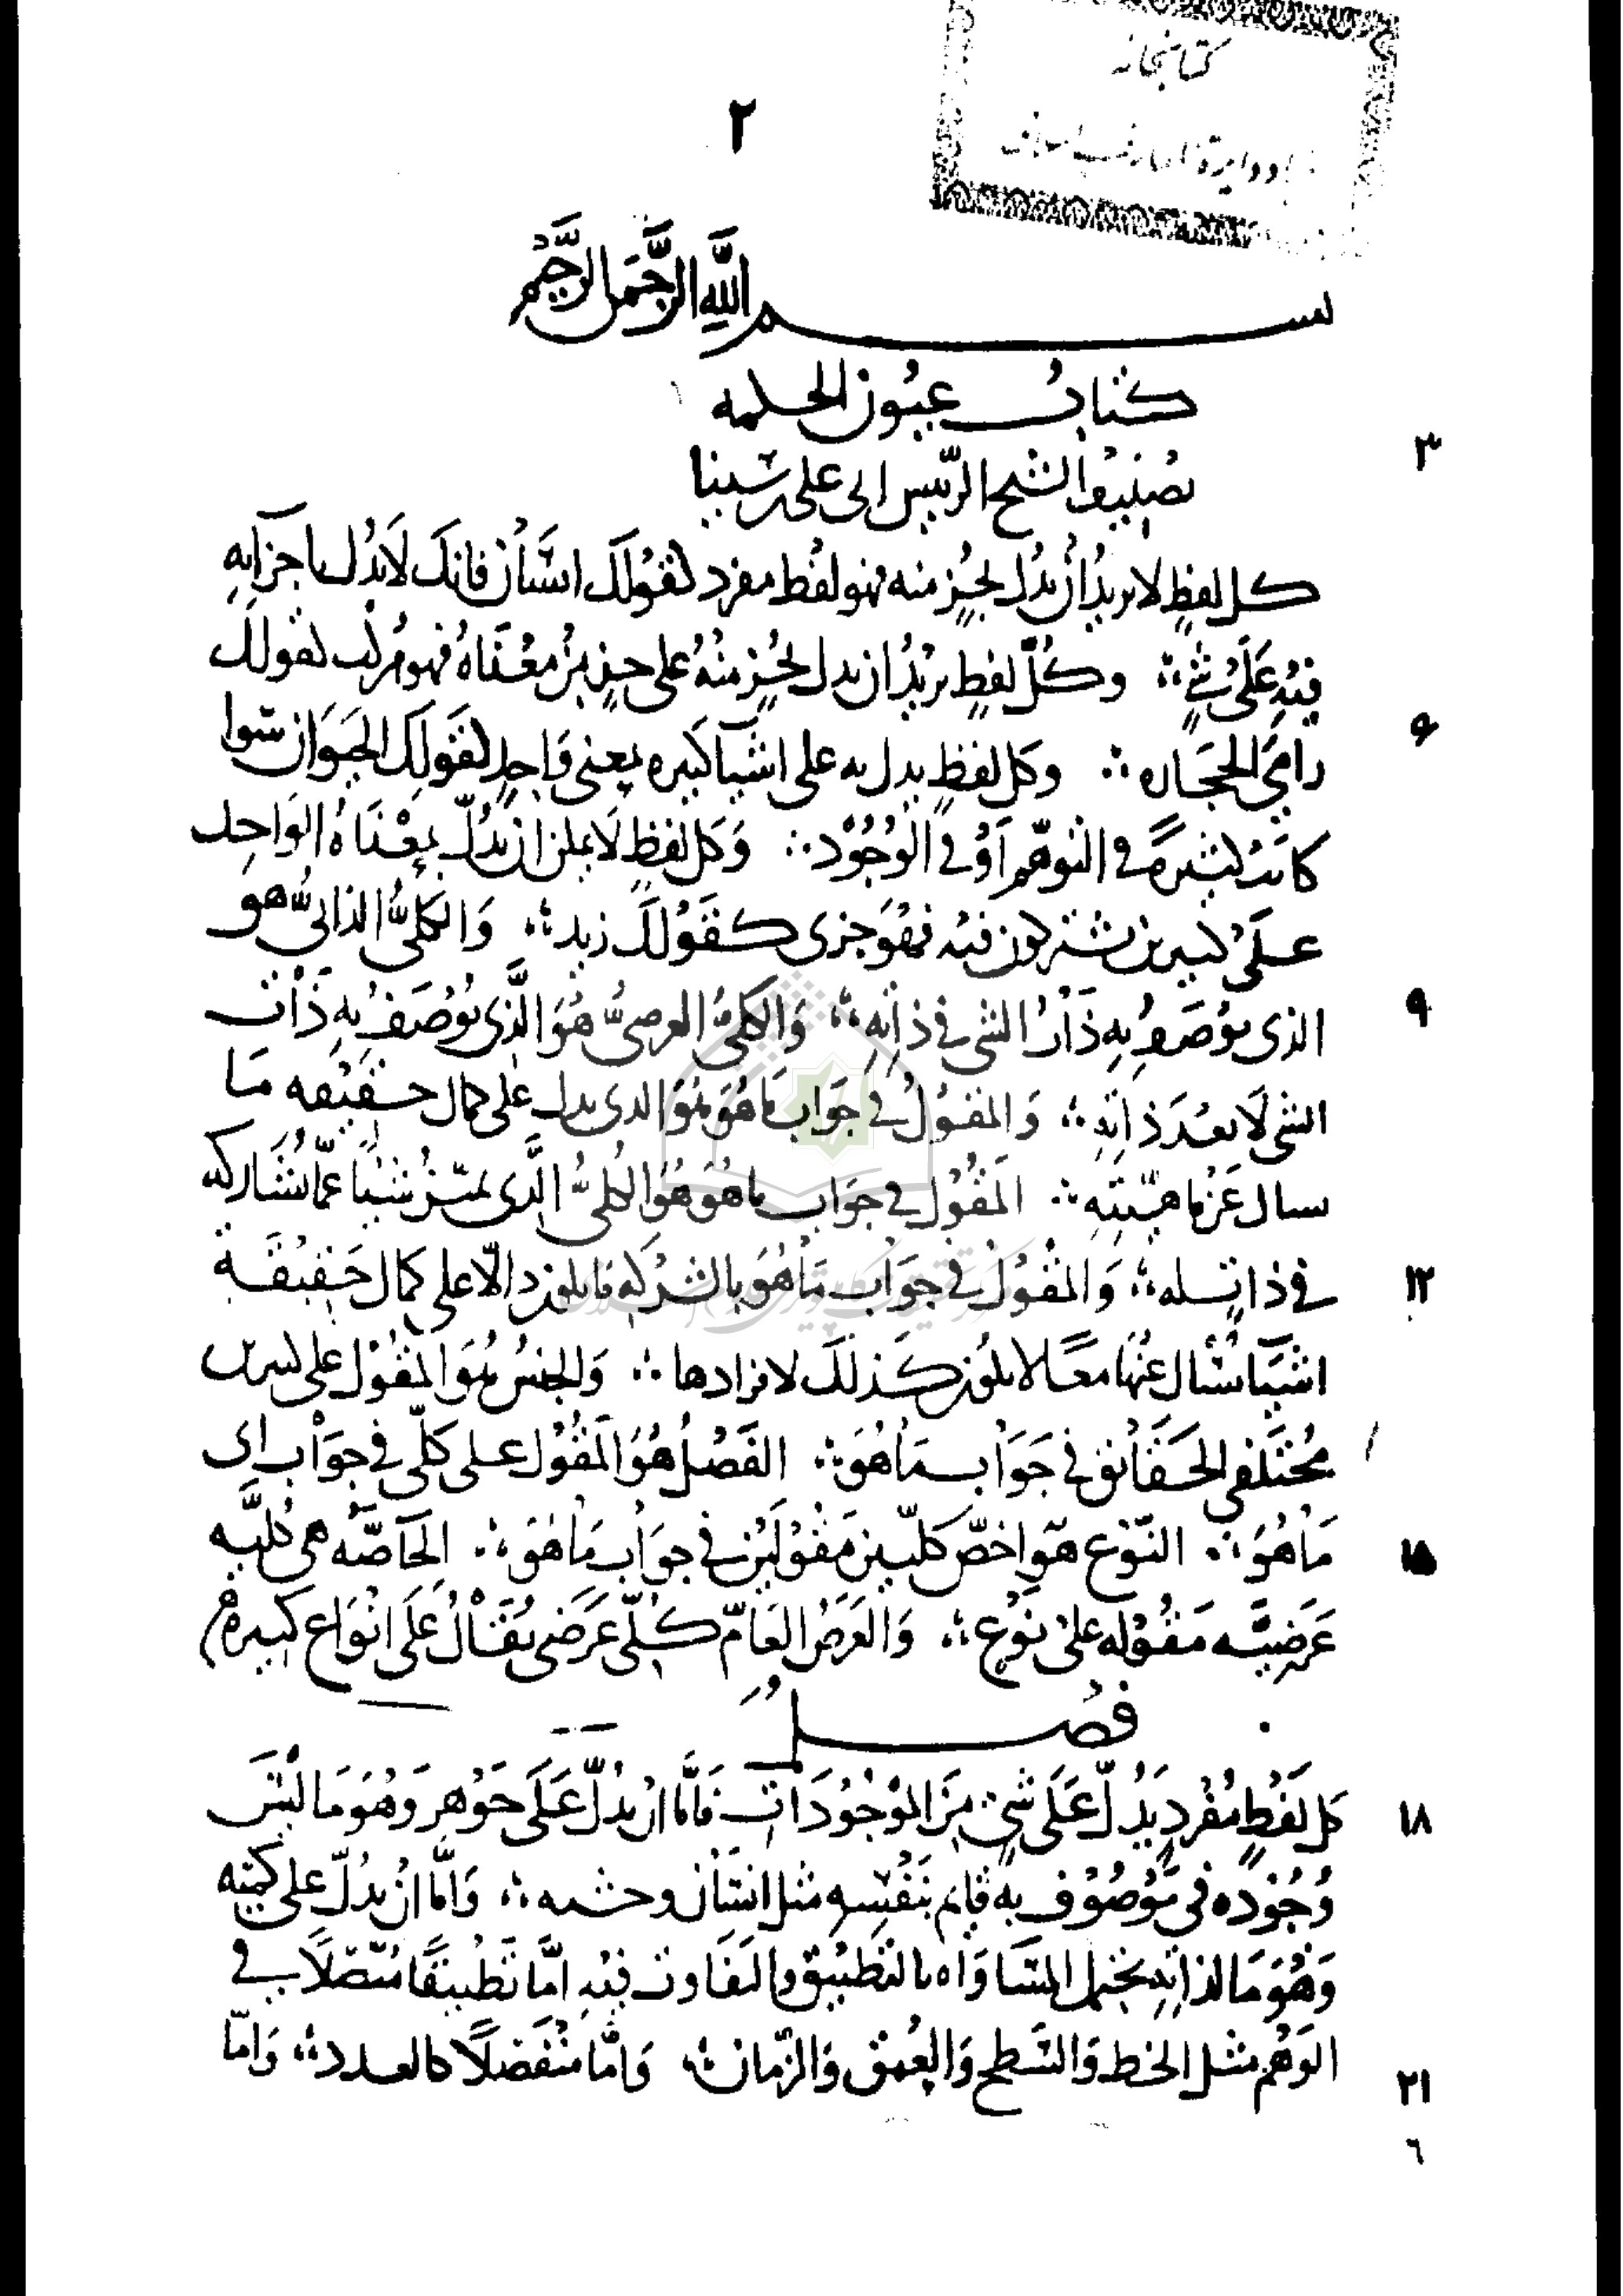 كتابخانه
٢
بسم الله الرحمن الرحيم
كتاب عيون الحكمه
٣
تصنيف الشيخ الرئيس ابى على بن سينا
كل لفظٍ لا تريد أن تدل بجزءٍ منه فهو لفظ مفرد كقولك انسان فانك لا تدل باجزآيه
فيه على شيءٍ ∴ وكل لفظٍ تريد ان تدل بجزءٍ منه على جزءٍ من معناه فهو مركب كقولك
٦
رامي الحجاره ∴ وكل لفظٍ يدل به على اشيا كثيره بمعنى واحدٍ كقولك الحيوان سوا
كانت كثيرةً في التوهم أو في الوجود ∴ وكل لفظٍ لا يمكن ان يدل بمعناه الواحد
على كثيرين يشتركون فيه فهو جزى كقولك زيد ∴ والكلى الذاتى هو
٩
الذى يوصف به ذات الشى في ذاته ∴ والكلى العرضى هو الذى يوصف به ذات
الشى لا بعد ذاته ∴ والمقول في جواب ما هو هو الذى يدل على كمال حقيقه ما
يسال عن ماهيته ∴ المقول في جواب ما هو هو الكلى الذى يميز شيئا عما يشاركه
١٢
في ذاتٍ له ∴ والمقول في جواب ما هو بالشركه ما يكون دالا على كمال حقيقة
اشيآ يسال عنها معًا لا يكون كذلك لافرادها ∴ والجنس هو المقول على كثيرين
مختلفى الحقائق في جواب ما هو ∴ الفصل هو المقول على كلى في جواب اى
١٥
ما هو ∴ النوع هو اخص كليين مقولين في جواب ما هو ∴ الخاصه هى كليه
عرضيه مقوله على نوع ∴ والعرض العام كلى عرضى يقال على انواع كثيره
فصل
١٨
كل لفظٍ مفردٍ يدل على شيءٍ من الموجودات فاما ان يدل على جوهر وهو ما ليس
وجوده في موصوف به قايم بنفسه مثل انسان وخشبه ∴ واما ان يدل على كميه
وهو ما لذاته يحتمل المساواه بالتطبيق والتفاوت فيه اما تطبيقًا متصلًا في
الوهم مثل الخط والسطح والعمق والزمان ∴ واما منفصلًا كالعدد ∴ واما
٢١
٦